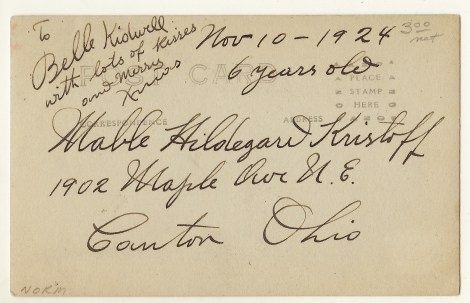 To
Belle Kidwell
with lots of kisses
and Merry
Xmas
Nov 10 - 1924
6 years old
3.00
net
POST CARD
PLACE
STAMP
HERE
CORRESPONDENCE
ADDRESS
Mable Hildegard Kristoff
1902 Maple Ave N.E.
Canton Ohio
NORM